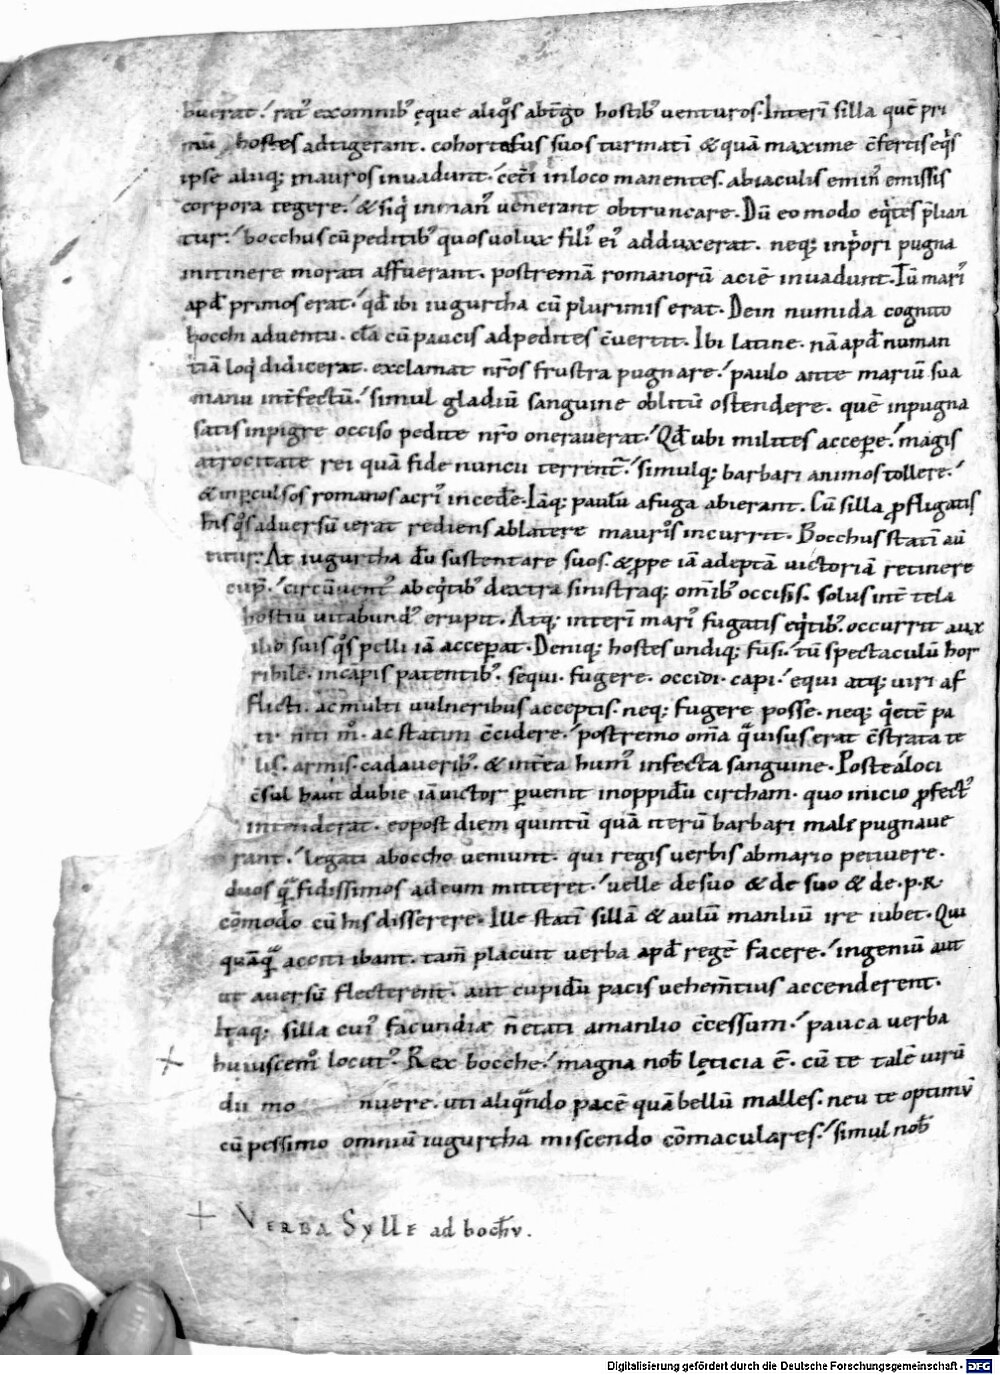 buerat. rat᾽ ex omnib᷒ ęque aliq̊s abt̄go hostib᷒ uenturos. Interī silla quē pri
mū hostes adtigerant. cohortatus suos turmatī & quā maxime c̄fertis eq̇s
ipse aliiq; mauros inuadunt. cet̄i in loco manentes. ab iaculis emin᷒ emissis
corpora tegere. & siq̇ in man᷒ uenerant obtruncare. Dū eo modo eq̇tes p̄lian
tur. bocchus cū peditib᷒ quos uolux fili᷒ ei᷒ adduxerat. neq; in ṗori pugna
in itinere morati affuerant. postremā romanorū aciē inuadunt. Tū mari᷒
apđ primos erat. qđ ibi iugurtha cū plurimis erat. Dein numida cognito
bocchi aduentu. cl̄a cū paucis ad pedites c̄uertit. Ibi latine. nā apđ numan
tiā loq̇ didicerat. exclamat nr̄os frustra pugnare. paulo ante mariū sua
manu int̄fectū. simul gladiū sanguine oblitū ostendere. quē in pugna
satis inpigre occiso pedite nr̄o cruentauerat. Qđ ubi milites accepe᷒. magis
atrocitate rei quā fide nuncii terrent᷒. simulq; barbari animos tollere.
& in ꝑculsos romanos acri᷒ incede᷒. Iāq; paulū a fuga abierant. Cū silla ꝓfligatis
his q̊s aduersū ierat rediens ab latere mauris incurrit. Bocchus statī au᷒
titur. At iugurtha dū sustentare suos. & ꝓpe iā adeptā uictoriā retinere
cup̄. circūuent᷒ ab eq̇tib᷒ dextra sinistraq; om̄ib᷒ occisis. solus int̄ tela
hostiū uitabund᷒ erupit. Atq; interī mari᷒ fugatis eq̇tib᷒. occurrit aux
ilio suis q̊s pelli iā acceperat. Deniq; hostes undiq; fusi. tū spectaculū hor
ribile. in capis patentib᷒. sequi. fugere. occidi. capi. equi atq; uiri af
flicti. ac multi uulneribus acceptis. neq; fugere posse. neq; q̇etē pa
ti. niti m̊. ac statim c̄cidere. postremo om̄a q̄ uisus erat c̄strata te
lis. armis. cadauerib᷒. & int̄ea hum᷒ infecta sanguine. Postea loci
c̄sul haut dubie iā uictor ꝑuenit in oppidū cirtham. quo inicio ꝓfect᷒
intenderat. eo post diem quintū quā iterū barbari male pugnaue
rant. legati a boccho ueniunt. qui regis uerbis ab mario petiuere.
duos q̄ fidissimos ad eum mitteret. uelle de suo & de suo & de .p.R
cōmodo cū his disserere. Ille statī sillā & aulū manliū ire iubet. Qui
quāq̄ acciti ibant. tam̄ placuit uerba apđ regē facere. ingeniū aut
ut auersū flecterent. aut cupidū pacis uehem̄tius accenderent.
Itaq; silla cui᷒ facundiæ n̄ etati a manlio c̄cessum. pauca uerba
huiuscem̊ locut᷒. Rex bocche. magna nob̄ lęticia ē. cū te talē uirū
dii mo nuere. uti aliq̄ndo pacē quā bellū malles. neu te optimū
cū pessimo omniū iugurtha miscendo cōmaculares. simul nob̄
+ VERBA SYLLE ad bochv̄.
Digitalisierung gefördert durch die Deutsche Forschungsgemeinschaft - DFG